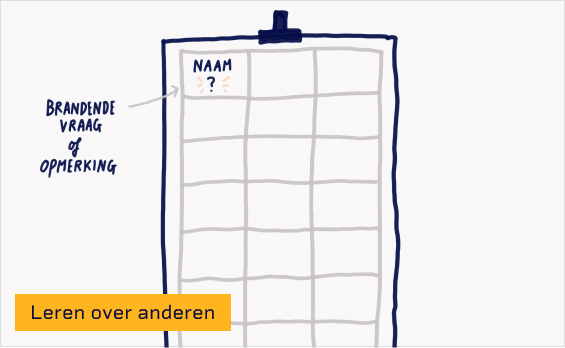 NAAM
?
BRANDENDE
VRAAG
of
OPMERKING
Leren over anderen